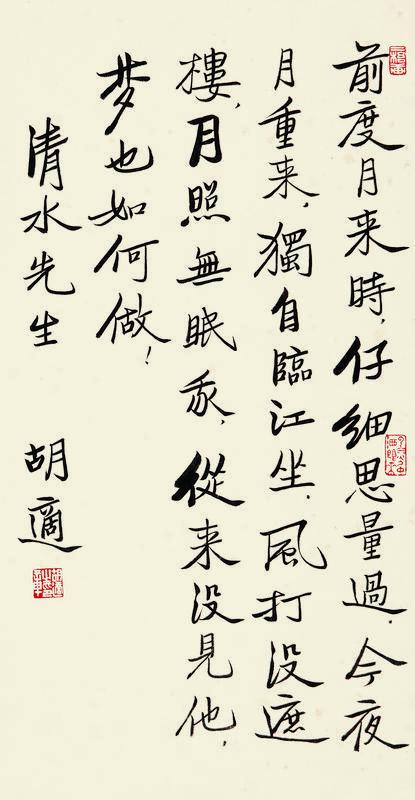 前度月来時，仔细思量過。今夜
月重来，獨自臨江坐。風打没遮
樓，月照無眠我，從来没見他，
梦也如何做！
清水先生
胡適